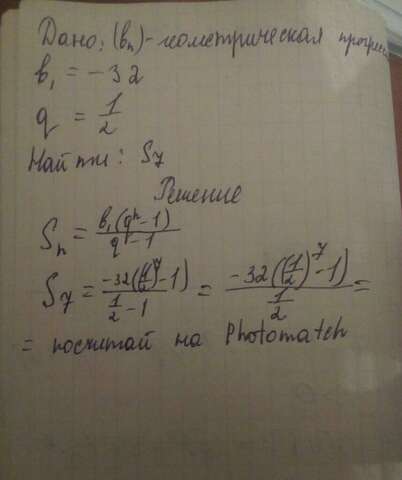 Дано: (bn) - геометрическая прогрес
b₁ = -32
q = 1/2
Найти: S7
Решение
Sn = b₁(qⁿ-1)/q-1
S7 = -32((1/2)⁷-1)/(1/2-1) = -32((1/2)⁷-1)/(1/2) =
= посчитай на Photomatch